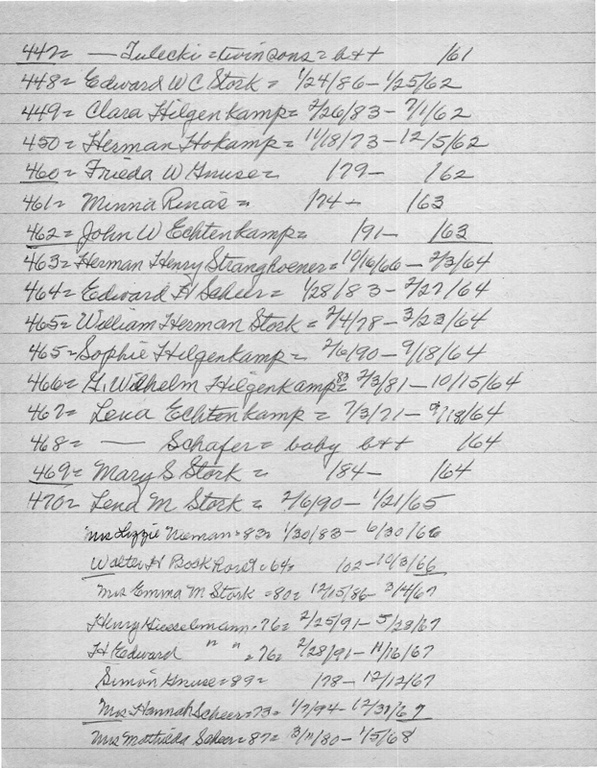 447= — Tulecki = twin sons = b++ /61
448= Edward W C Stork = 1/24/86 – 1/25/62
449= Clara Hilgenkamp = 2/26/83 – 7/1/62
450= Herman Hokamp = 11/18/73 – 12/5/62
460= Frieda W Gnuse = /79 – /62
461= Minna Rinas = /74 – /63
462= John W Echtenkamp = /91 – /63
463= Herman Henry Stranghoener = 10/16/66 – 2/3/64
464= Edward H Scheer = 1/28/83 – 2/27/64
465= William Herman Stork = 2/4/78 – 3/23/64
465= Sophie Hilgenkamp = 2/6/90 – 9/18/64
466= G. Wilhelm Hilgenkamp = 83 2/3/81 – 10/15/64
467= Lena Echtenkamp = 7/3/71 – 9/18/64
468= — Schafer = baby b++ /64
469= Mary S Stork = /84 – /64
470= Lena M Stork = 2/6/90 – 1/21/65
Mrs Lizzie Nieman = 83= 1/30/83 – 6/30/66
Walter H = 64= /02 – 10/3/66
Mrs Emma M Stork = 80= 12/15/86 – 3/4/67
Henry Gieselmann = 76= 2/25/91 – 5/23/67
H Edward " " = 76= 2/28/91 – 11/16/67
Simon Gnuse = 89= /78 – 12/12/67
Mrs Hannah Scheer = 73= 1/7/94 – 12/31/67
Mrs Mathilda Scheer = 87= 3/11/80 – 1/5/68